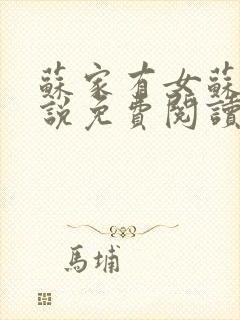 蘇家有女蘇
說免費閱讀
馬埔